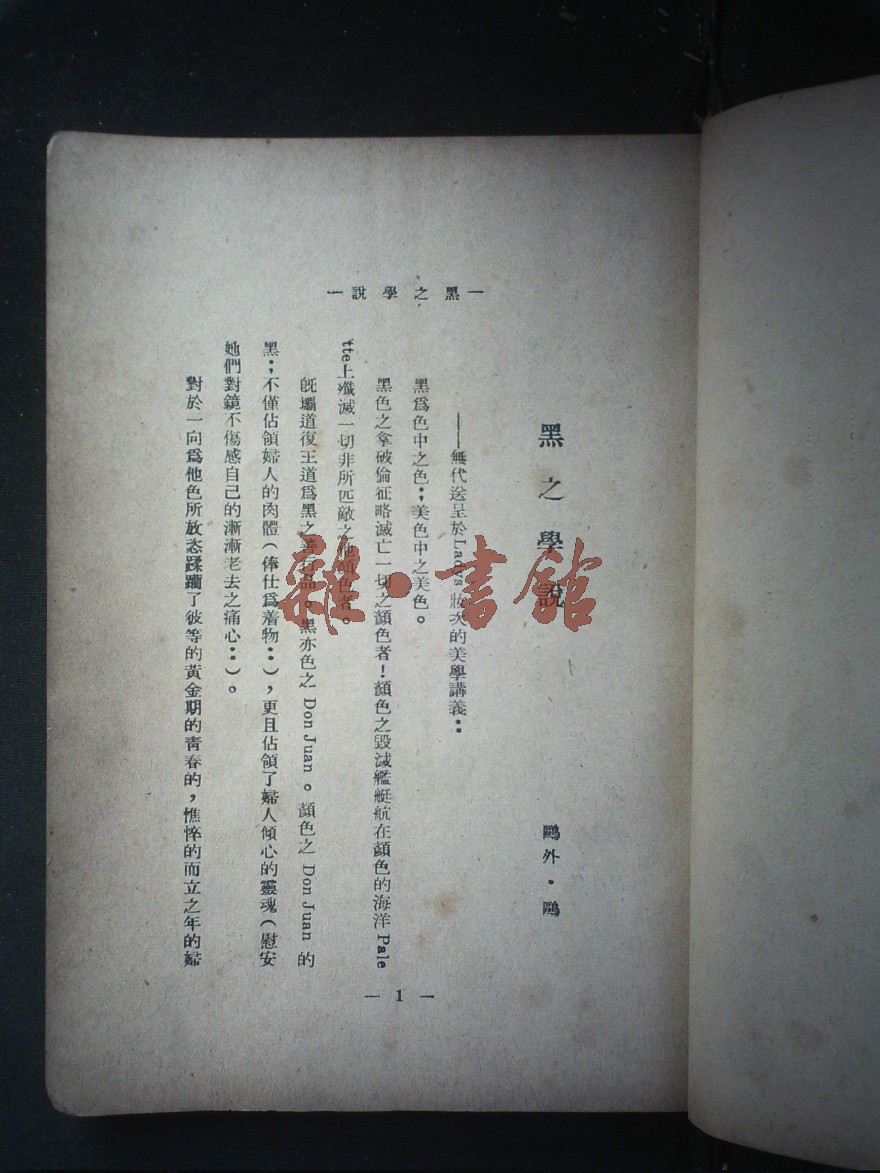 一黑之學說一
黑之學說
鷗外·鷗
——無代送呈於Ladys妝次的美學講義：
黑爲色中之色；美色中之美色。
黑色之拿破倫征略滅亡一切之顏色者！顏色之毀滅艦艇航在顏色的海洋Pale
tte上殲滅一切非所匹敵之他顏色者。
旣壩道復王道爲黑之 品。黑亦色之 Don Juan。顏色之 Don Juan 的
黑；不僅佔領婦人的肉體（俸仕爲着物：），更且佔領了婦人傾心的靈魂（慰安
她們對鏡不傷感自己的漸漸老去之痛心：）。
對於一向爲他色所放恣蹂躪了彼等的黃金期的靑春的，憔悴的而立之年的婦
— 1 —
雜·書館